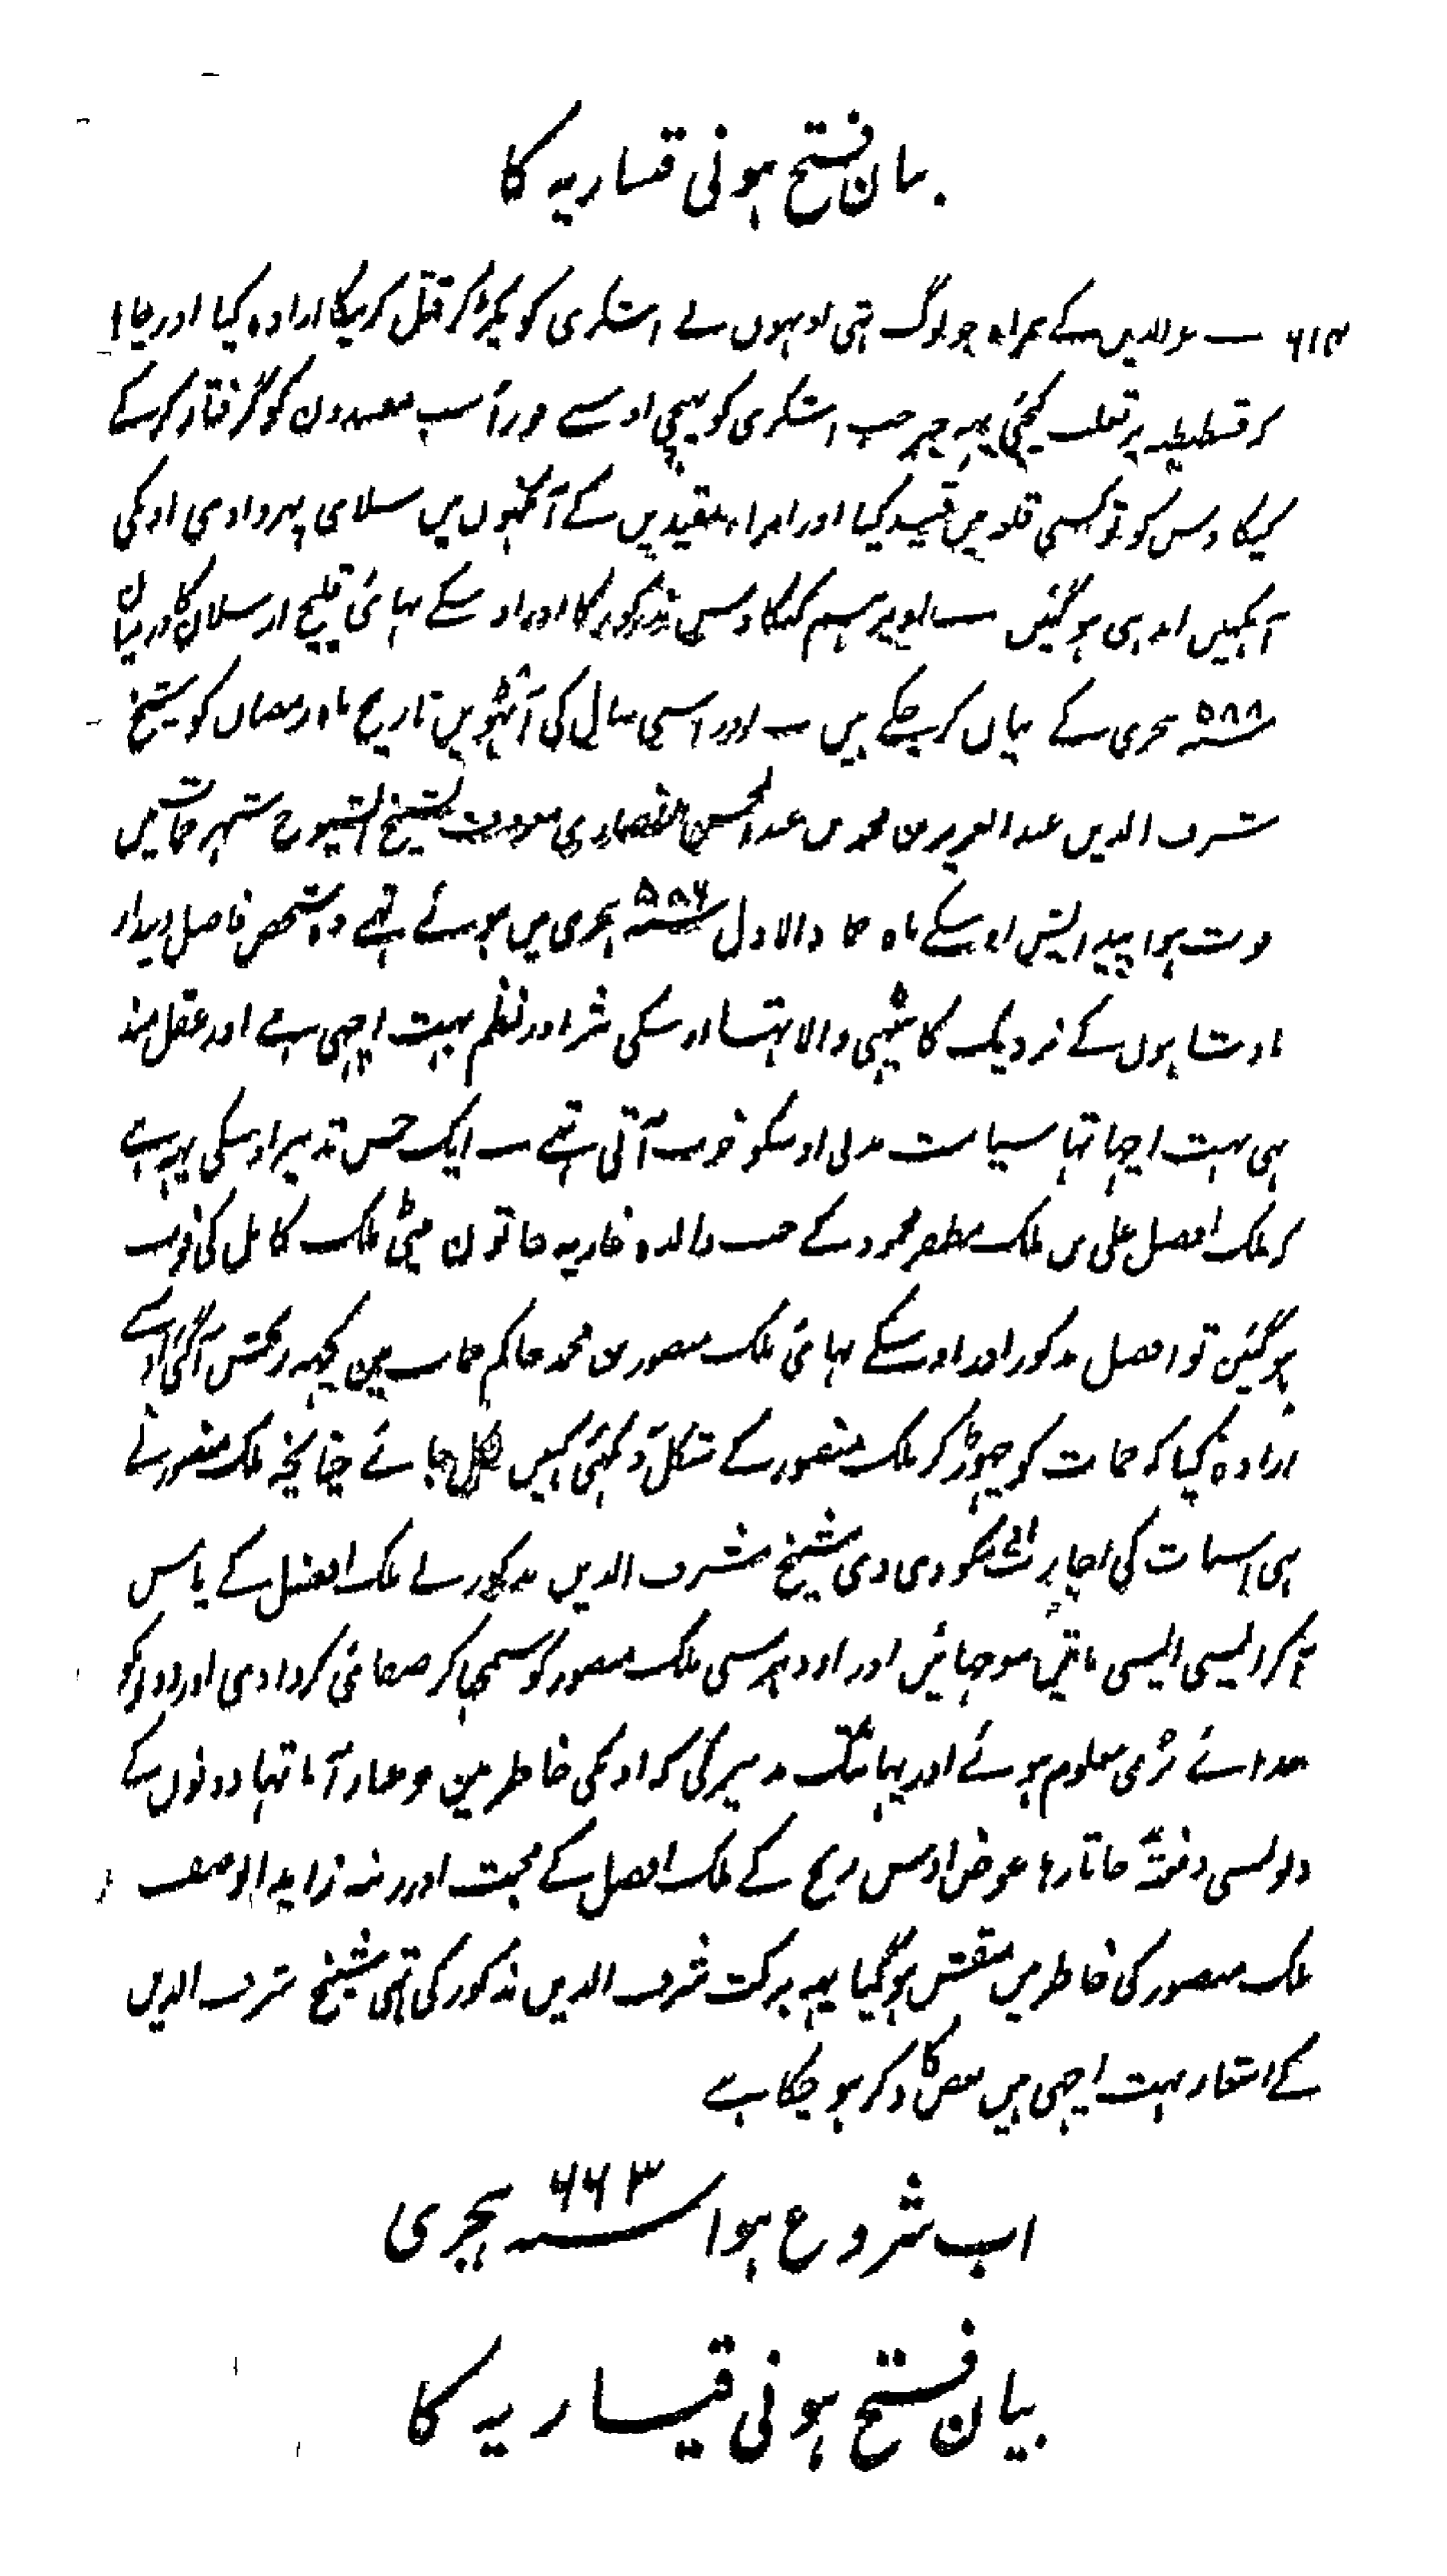 بیان فتح ہونی قیساریہ کا
۶۱۴ کے ہمراہ جو لوگ تہی اونہوں نے اشکری کو پکڑ کر قتل کرنیکا ارادہ کیا اور چاہا
کر قسطنطنیہ پر کیجئی یہہ خبر جب اشکری کو پہنچی اوسے فوراً سب مفسدون کو گرفتار کرکے
کیکاوس کو تو کسی قلعہ میں قید کیا اور امراء مقیدین کے آنکہوں میں سلای پہروادی اونکی
آنکہیں اندہی ہو گئیں اوپر ہم کیکاوس مذکور کا اور اوسکے بہائی قلیج ارسلان کا درمیان
سنہ ۵۸۸ ہجری کے بیان کر چکے ہیں اور اسی سال کی آٹہویں تاریخ ماہ رمضان کو شیخ
شرف الدین عبد العزیز بن محمد بن عبد المحسن انصاری معروف شیخ الشیوخ شہر حمات میں
فوت ہوا پیدایش اوسکے ماہ جمادالاول سنہ ۵۸۶ ہجری میں ہوئے تہے وہ شخص فاضل دیندار
بادشاہوں کے نزدیک کا بیٹہنی والا تہا اوسکی نثر اور نظم بہت اچہی ہے اور عقل مند
ہی بہت اچہا تہا سیاست مدنی اوسکو خوب آتی تہے ایک حسن تدبیر اوسکی یہہ ہے
کر ملک افضل علی بن ملک مظفر محمود کے جب والدہ غازیہ خاتون بیٹی ملک کامل کی فوت
ہو گئین تو افضل مذکور اور اوسکے بہائی ملک منصور بن محمد حاکم حمات مین کچہہ رنجش آگئی اوسکے
ارادہ کیا کہ حمات کو چہوڑ کر ملک منصور کے شکل نہ دیکہئی کہیں نکل جائے چنانچہ ملک منصور نے
ہی اسبات کی اجازت اوسکو دی دی شیخ شرف الدین مذکور نے ملک افضل کے پاس
آ کر ایسی ایسی باتیں سوجہائیں اور اودہر سی ملک منصور کو سمجہا کر صفائی کروادی اور دونوکو
جدائے بُری معلوم ہوئے اور یہانتک تدبیر کی کہ اونکی خاطر مین جو غبار آیا تہا دونوں کے
دلونسی دفعۃً جاتا رہا عوض اوس رنج کے ملک افضل کے محبت اور رتبہ زاید الوصف
ملک منصور کی خاطر میں منقش ہو گیا یہہ برکت شرف الدین مذکور کی تہی شیخ شرف الدین
کے اشعار بہت اچہی ہیں بعض کا ذکر ہو چکا ہے
اب شروع ہوا سنہ ۶۶۳ ہجری
بیان فتح ہونی قیساریہ کا